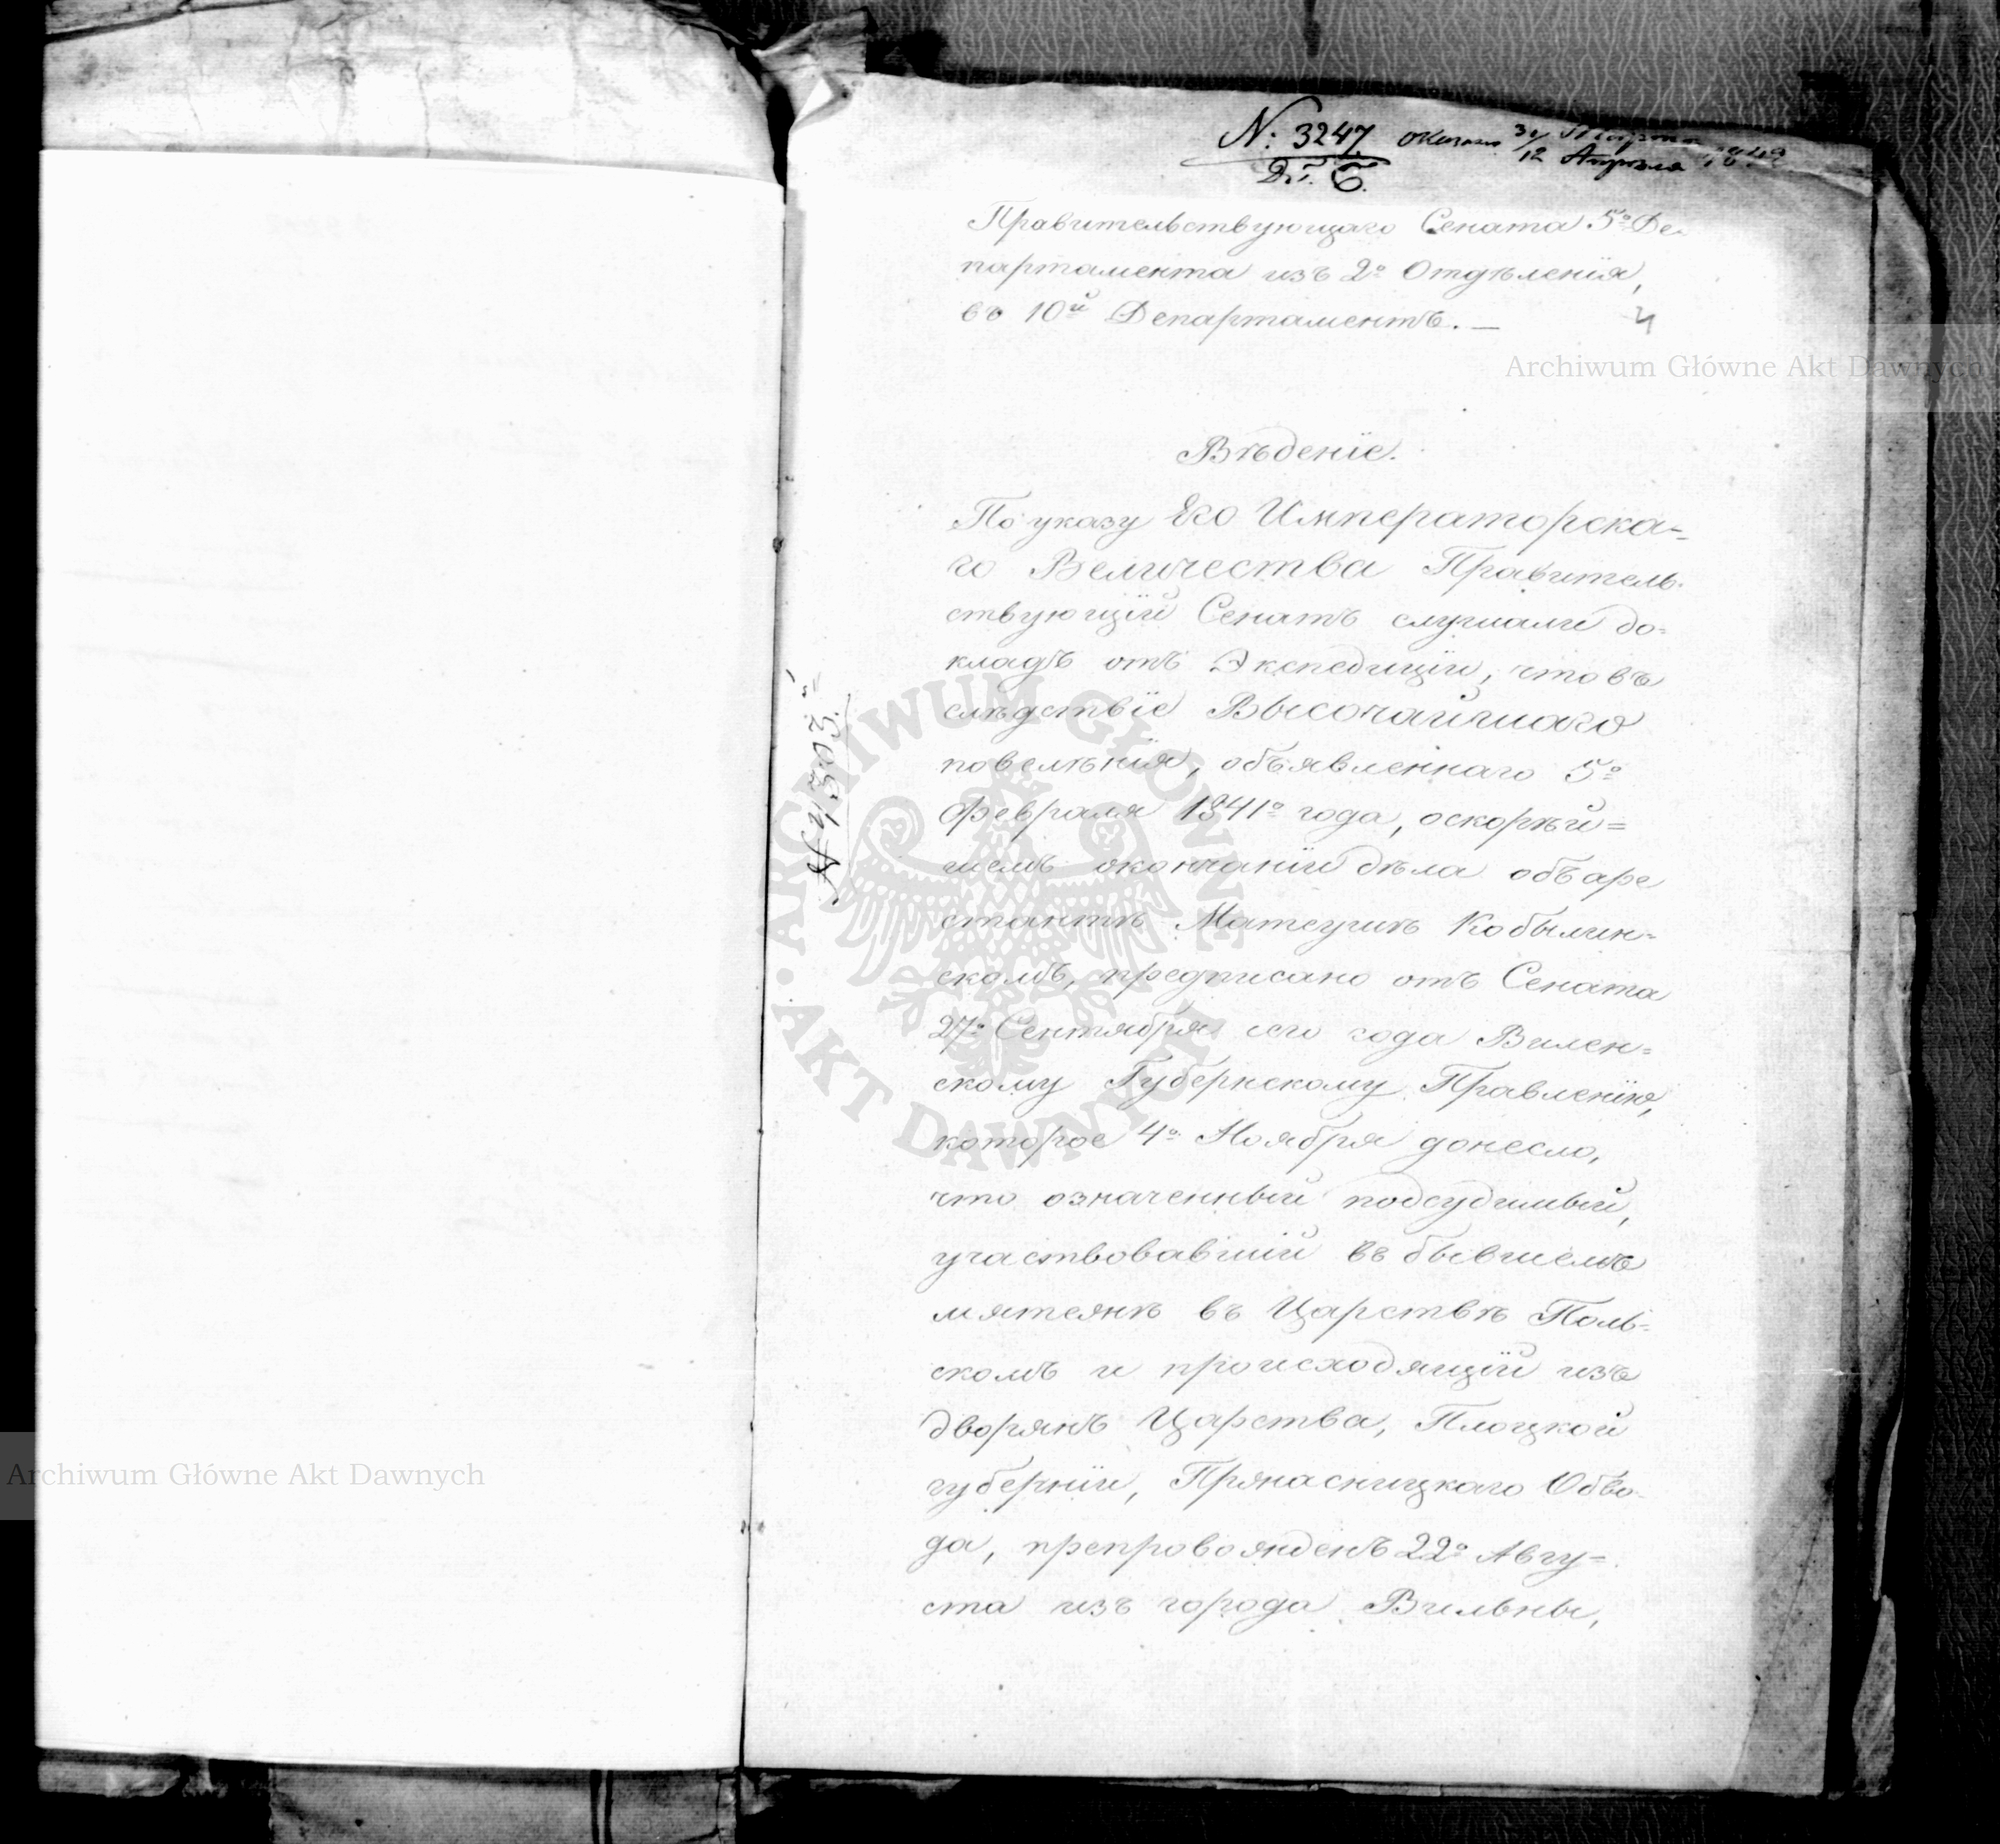 N: 3247
30/12 Апреля
Правительствующаго Сената 5º Де-
партамента изъ 2º Отдѣленія,
въ 10й Департаментъ. —
4
Archiwum Główne Akt Dawnych
Вѣденіе.
По указу Его Императорска-
го Величества Правитель-
ствующій Сенатъ слушали до-
кладъ отъ Экспедиціи, что въ
слѣдствіе Высочайшаго
повелѣнія, объявленнаго 5º
Февраля 1841º года, о скорѣй=
шемъ окончаніи дѣла объ аре
стантѣ Матеушѣ Кобылин-
скомъ, предписано отъ Сената
27º Сентября сего года Вилен=
скому Губернскому Правленію,
которое 4º Ноября донесло,
что означенный подсудимый,
участвовавшій въ бывшемъ
мятежѣ въ Царствѣ Поль-
скомъ и происходящій изъ
дворянъ Царства, Плоцкой
губерніи, Пржасницкаго Обво-
да, препровожденъ 22º Авгу=
ста изъ города Вильны,
ARCHIWUM GŁÓWNE AKT DAWNYCH
Archiwum Główne Akt Dawnych